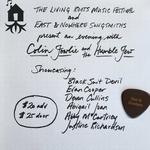 THE LIVING ROOTS MUSIC FESTIVAL
AND
EAST & NOWHERE SONGSMITHS
present an evening with
Colin Fowlie and the Humble Four
Showcasing:
Black Suit Devil
Evan Cooper
Dawn Collins
Abigail Ivan
Addy McCartney
Justine Richardson
$20 adv
$25 door